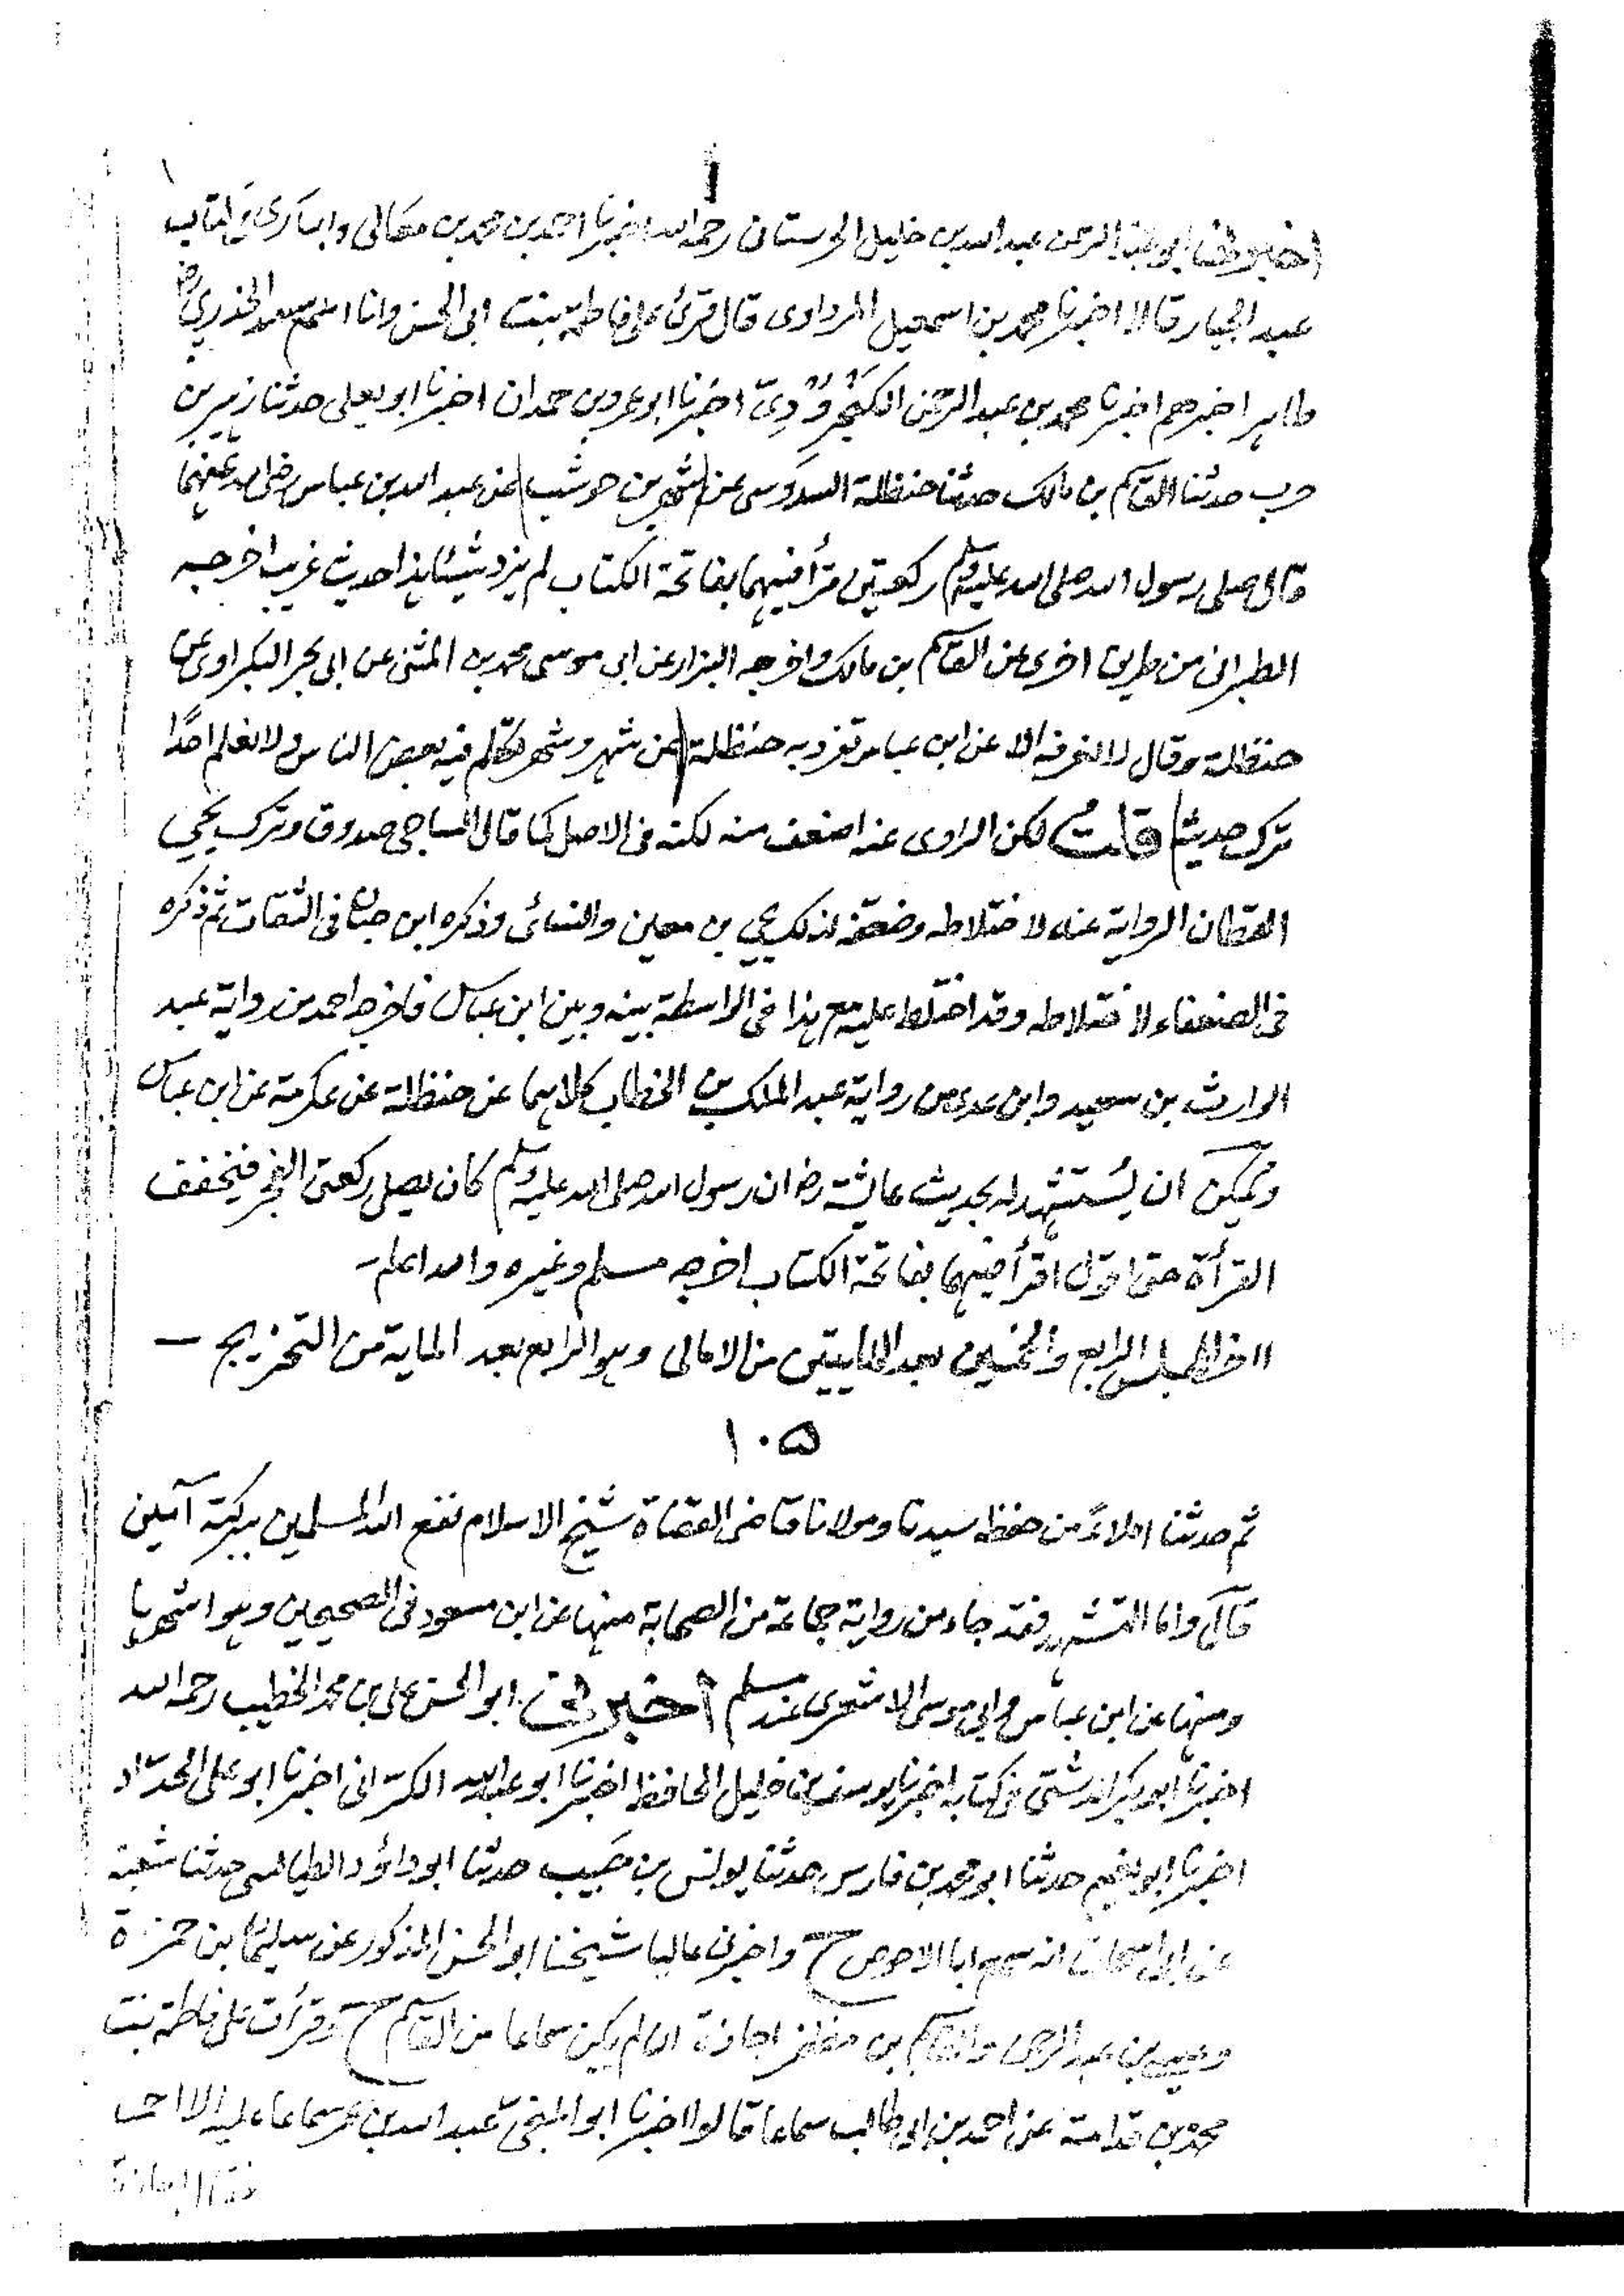 اخبرني ابو عبد الرحمن عبد الله بن خليل الحرستاني رحمه الله اخبرنا احمد بن محمد بن معالى و ابا بكرى في كتابه
عبد الجبار قالا اخبرنا محمد بن اسمعيل المرداوى قال قرئ على فاطمة بنت ابى الحسن وانا اسمع سعد الخير
طاہر اخبرهم اخبرنا محمد بن عبد الرحمن الكَنْجَرُوْدِىّ اخبرنا ابو عمرو بن حمدان اخبرنا ابو يعلى حدثنا زہير بن
حرب حدثنا القاسم بن مالك حدثنا حنظلة السدوسى عن شهر بن حوشب عن عبد الله بن عباس رضى الله عنهما
قال صلى رسول الله صلى الله عليه وسلم ركعتين قرأ فيهما بفاتحة الكتاب لم يزد شيئا ہذا حديث غريب اخرجه
الطبرانى من طريق اخرى عن القاسم بن مالك واخرجه البزار عن ابى موسى محمد بن المثنى عن ابى بحر البكراوى عن
حنظلة وقال لا نعرفه الا عن ابن عباس تفرد به حنظلة عن شهر وشهر تكلم فيه بعض الناس ولا نعلم احدًا
ترك حديثه قلت لكن الراوى عنه اضعف منه لكنه فى الاصل كما قال الساجى صدوق وترك يحيى
القطان الرواية عنه لاختلاطه وضعفه لذلك يحيى بن معين والنسائى وذكره ابن حبان فى الثقات ثم ذكره
فى الضعفاء لاختلاطه وقد اختلط عليه مع ہذا فى الواسطة بينه وبين ابن عباس فاخرجه احمد من رواية عبد
الوارث بن سعيد وابن عدى من رواية عبد الملك بن الخطاب كلاہما عن حنظلة عن عكرمة عن ابن عباس
ويمكن ان يُستشهد له بحديث عائشة رض ان رسول الله صلى الله عليه وسلم كان يصلى ركعتى الفجر فيخفف
القرأة حتى اقول اقرأ فيهما بفاتحة الكتاب اخرجه مسلم وغيره والله اعلم -
اخر المجلس الرابع والخمسين بعد المايتين من الامالى وہو الرابع بعد الماية من التخريج —
۱۰۵
ثم حدثنا املاءً من حفظه سيدنا ومولانا قاضى القضاة شيخ الاسلام نفع الله المسلمين ببركته آمين
قال واما التشهد فقد جاء من رواية جماعة من الصحابة منها عن ابن مسعود فى الصحيحين وہو اشهرہا
ومنها عن ابن عباس وابى موسى الاشعرى عند مسلم اخبرنى ابو الحسن على بن محمد الخطيب رحمه الله
اخبرنا ابو بكر الدشتى فى كتابه اخبرنا يوسف بن خليل الحافظ اخبرنا ابو عبد الله الكرّانى اخبرنا ابو على الحدّاد
اخبرنا ابو نعيم حدثنا ابو محمد بن فارس حدثنا يونس بن حبيب حدثنا ابو داؤد الطيالسى حدثنا شعبة
عن ابى اسحاق انه سمع ابا الاحوص ح واخبرنى عاليا شيخنا ابو الحسن المذكور عن سليمان بن حمزة
وعيسى بن عبد الرحمن والقاسم بن مظفر اجازة ان لم يكن سماعا من القاسم ح وقرأت على فاطمة بنت
محمد بن قدامة عن احمد بن ابى طالب سماعا قالوا اخبرنا ابو المنجى عبد الله بن عمر سماعا عليه الا احمد